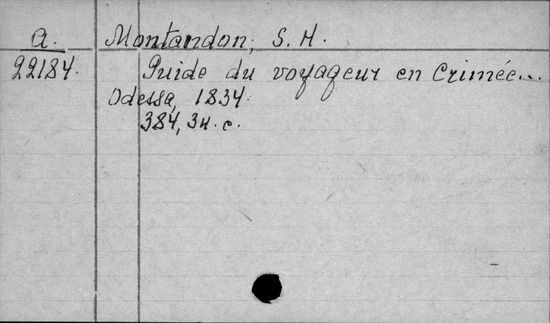 a. Montandon, S. H.
22184. Guide du voyageur en Crimée...
Odessa, 1834.
384, 34. c.